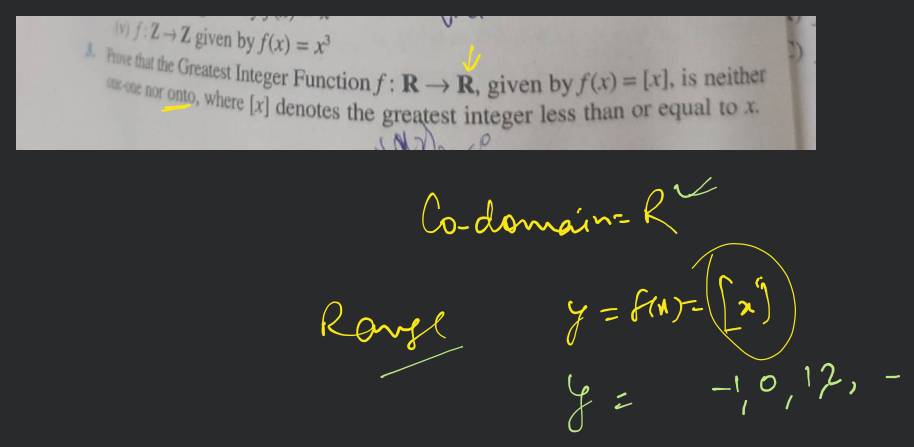 (v) f : Z → Z given by f(x) = x³
3. Prove that the Greatest Integer Function f : R → R, given by f(x) = [x], is neither
one-one nor onto, where [x] denotes the greatest integer less than or equal to x.
Co-domain = R
Range
y = f(x) = [x]
y = -1, 0, 1 2, -